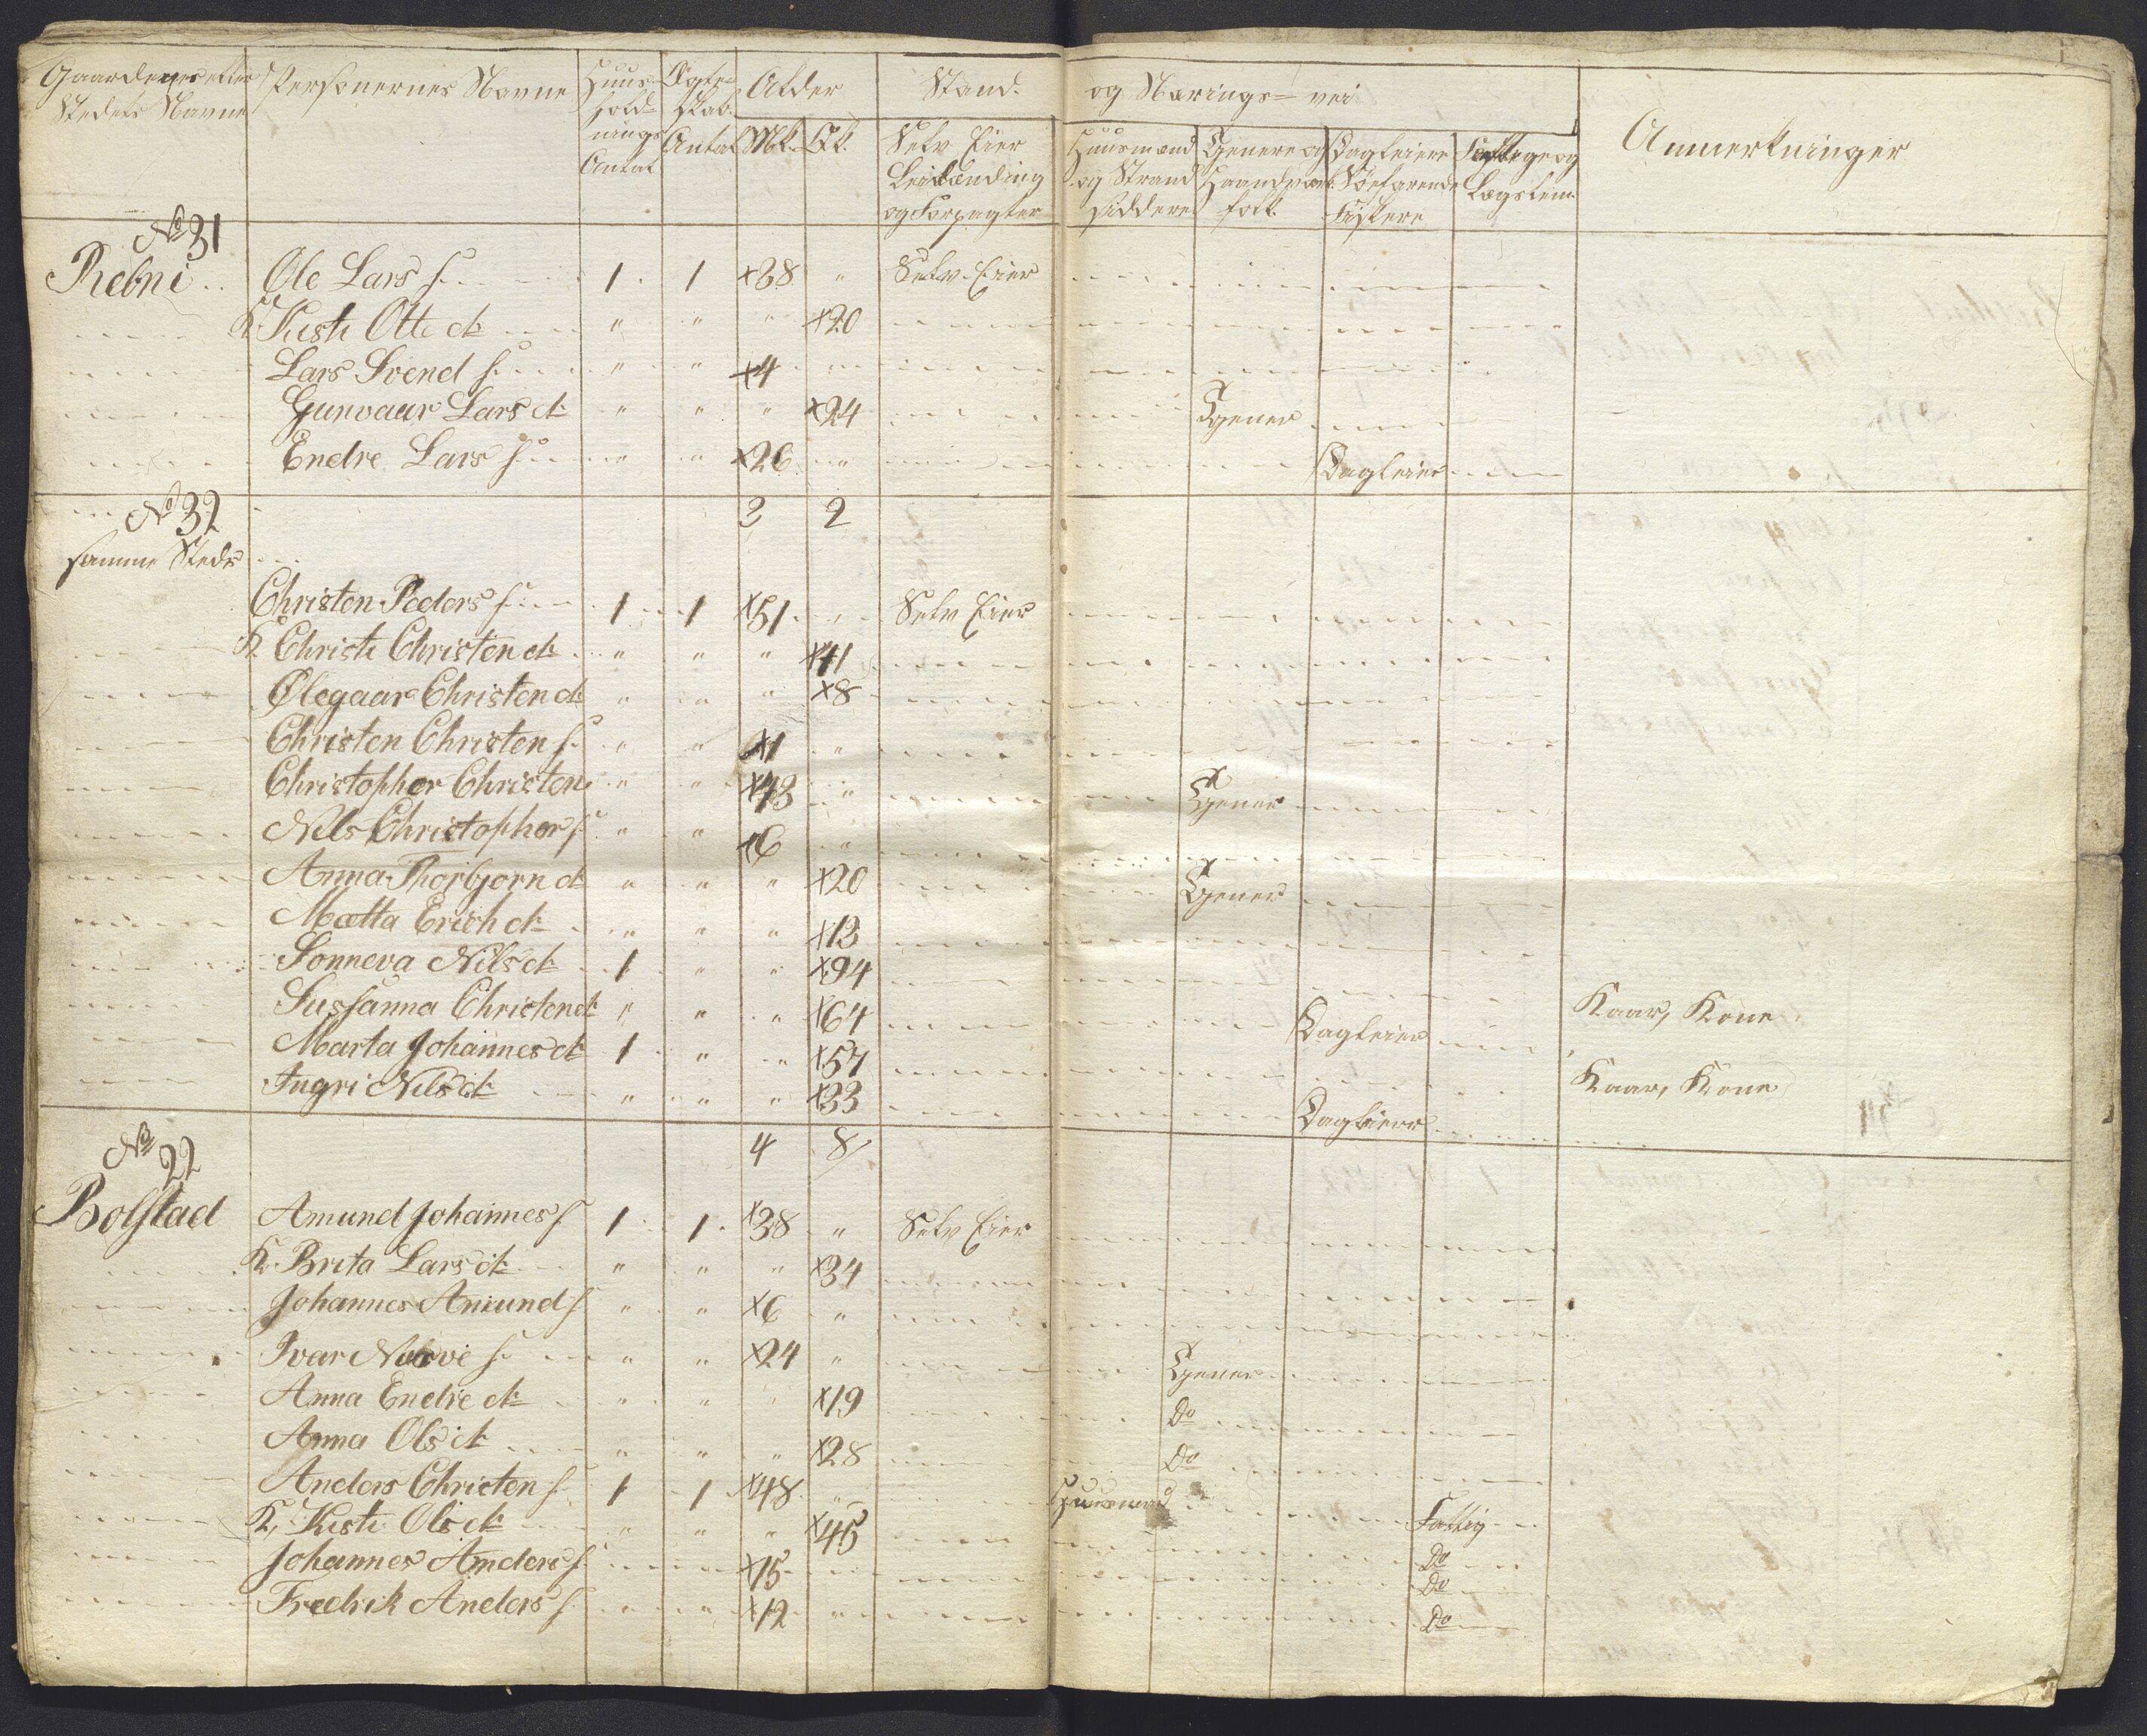 Gaardenes eller Stedets Navne | Personernes Navne | Huusholdnings Antal | Ægteskab. Antal | Alder Mk. Qk. | Stand- og Nærings- vei | Anmerkninger
Selv Eier Leilænding og Forpagter | Huusmænd og Strand siddere | Tjenere og Haandværk folk | Dagleiere Søefarende Fiskere | Fattige og Lægslem
No 31
Rebni Ole Lars s: 1 1 x38 " Selv Eier
K Kisti Otte d: " " " x20
Lars Svend s: " " x4
Gunvaar Lars d: " " " x24 Tjener
Endre Lars s: " " x26 " Dagleier
3 2
No 32
samme Steds
Christen Peders s: 1 1 x51 Selv Eier
K Christi Christen d: " " " x41
Ølegaar Christen d: " " " x8
Christen Christen s: " " x1 "
Christopher Christen " " x43 " Tjener
Nils Christopher s: " " x6 "
Anna Thorbjørn d: " " " x20 Tjener
Mætta Erich d: " " " x13
Sønneva Nils d: 1 " " x94 Kaar, Kone
Susanna Christen d: " " " x64 Dagleier
Marta Johannes d: 1 " " x57 Kaar, Kone
Ingri Nils d: " " " x33 Dagleier
4 8
No 22
Bolstad Amund Johannes s 1 1 x38 " Selv Eier
K Brita Lars d: " " " x34
Johannes Amund s " " x6 "
Ivar s: " " x24 " Tjener
Anna Endre d: " " " x19 Do
Anna Ols d: " " " x28 Do
Anders Christen s 1 1 x48 " Huusmand Fattig
K, Kisti Ols d: " " " x45 Do
Johannes Anders s x15 Do
Fredrik Anders s " " x12 " Do